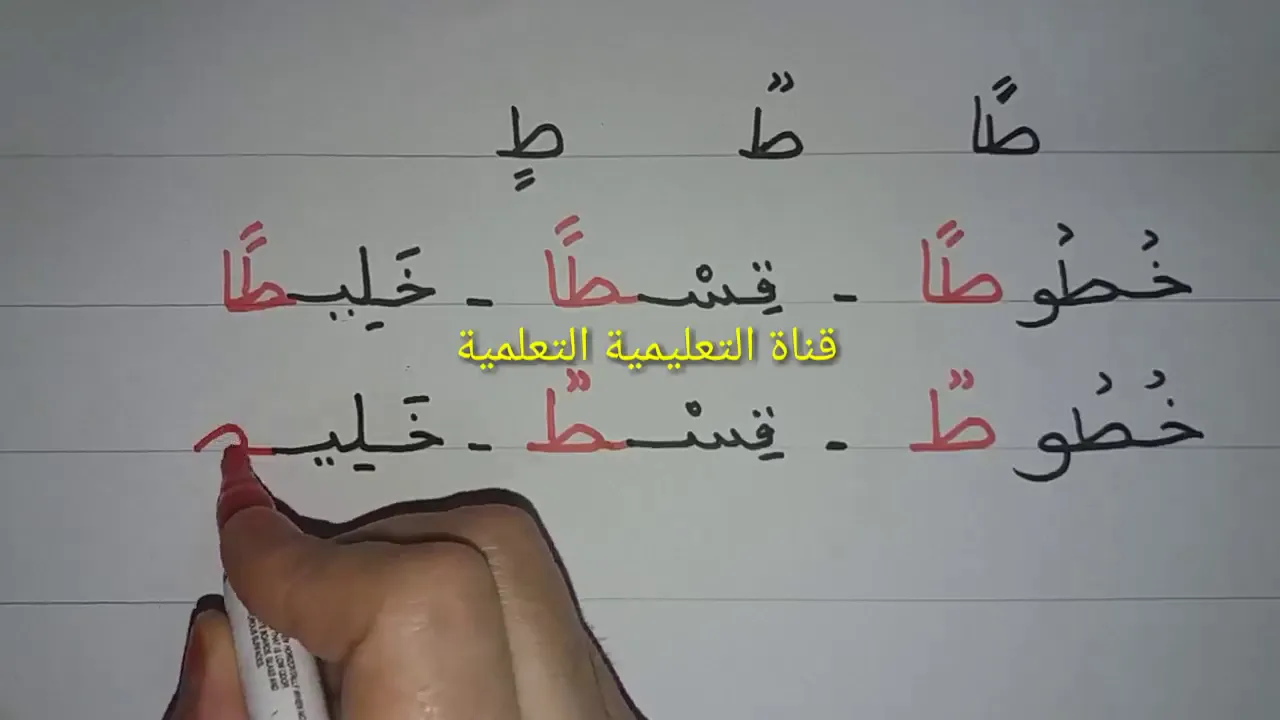 طًا طٌ طٍ
خُطُوطًا - قِسْطًا - خَلِيطًا
قناة التعليمية التعلمية
خُطُوطٌ - قِسْطٌ - خَلِيـ